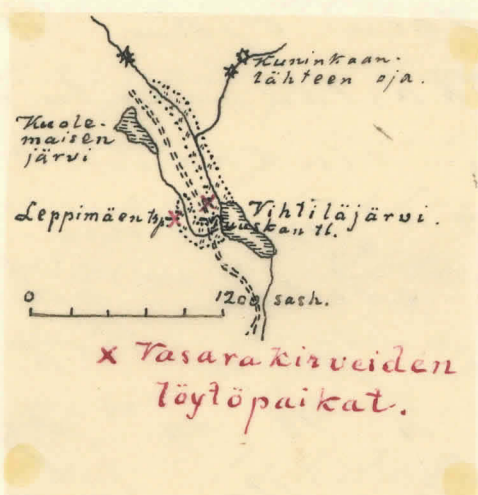 Kuninkaan-
lähteen oja.
Kuole-
maisen
järvi
Leppimäen tp.
Vihtiläjärvi.
uuskan tl.
0 1200 sash.
x Vasarakirveiden
löytöpaikat.